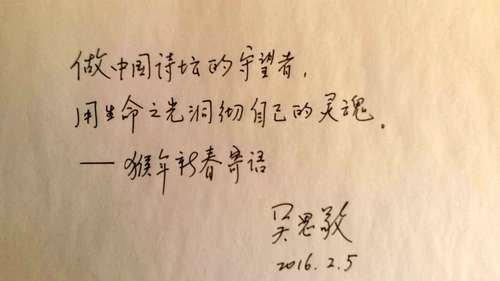 做中国诗坛的守望者，
用生命之光洞彻自己的灵魂。
——猴年新春寄语
吴思敬
2016.2.5